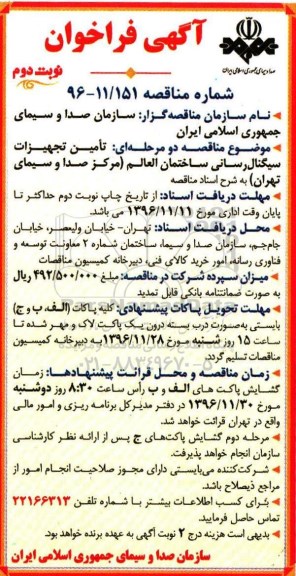 آگهی فراخوان
صدا و سیمای جمهوری اسلامی ایران
نوبت دوم
شماره مناقصه ۱۱/۱۵۱-۹۶
نام سازمان مناقصه‌گزار: سازمان صدا و سیمای
جمهوری اسلامی ایران
موضوع مناقصه دو مرحله‌ای: تأمین تجهیزات
سیگنال‌رسانی ساختمان العالم (مرکز صدا و سیمای
تهران) به شرح اسناد مناقصه
مهلت دریافت اسناد: از تاریخ چاپ نوبت دوم حداکثر تا
پایان وقت اداری مورخ ۱۳۹۶/۱۱/۱۱ می باشد.
محل دریافت اسناد: تهران- خیابان ولیعصر، خیابان
جام‌جم، سازمان صدا و سیما، ساختمان شماره ۲ معاونت توسعه و
فناوری رسانه، امور خرید کالای فنی دبیرخانه کمیسیون مناقصات
میزان سپرده شرکت در مناقصه: مبلغ ۴۹۲/۵۰۰/۰۰۰ ریال
به صورت ضمانتنامه بانکی قابل تمدید
مهلت تحویل پاکات پیشنهادی: کلیه پاکات (الف، ب و ج)
بایستی به‌صورت درب بسته درون یک پاکت لاک و مهر شده تا
ساعت ۱۵ روز شنبه مورخ ۱۳۹۶/۱۱/۲۸ به دبیرخانه کمیسیون
مناقصات تسلیم گردد
زمان مناقصه و محل قرائت پیشنهادها: زمان
گشایش پاکت های الف و ب رأس ساعت ۸:۳۰ روز دوشنبه
مورخ ۱۳۹۶/۱۱/۳۰ در دفتر مدیرکل برنامه ریزی و امور مالی
واقع در تهران قرائت خواهد شد.
مرحله دوم گشایش پاکت‌های ج پس از ارائه نظر کارشناسی
سازمان انجام خواهد پذیرفت.
شرکت‌کننده می‌بایستی دارای مجوز صلاحیت انجام امور از
مراجع ذیصلاح باشد.
برای کسب اطلاعات بیشتر با شماره تلفن ۲۲۱۶۶۳۱۳
تماس حاصل فرمایید.
بدیهی است هزینه درج ۲ نوبت آگهی به عهده برنده خواهد بود.
سازمان صدا و سیمای جمهوری اسلامی ایران